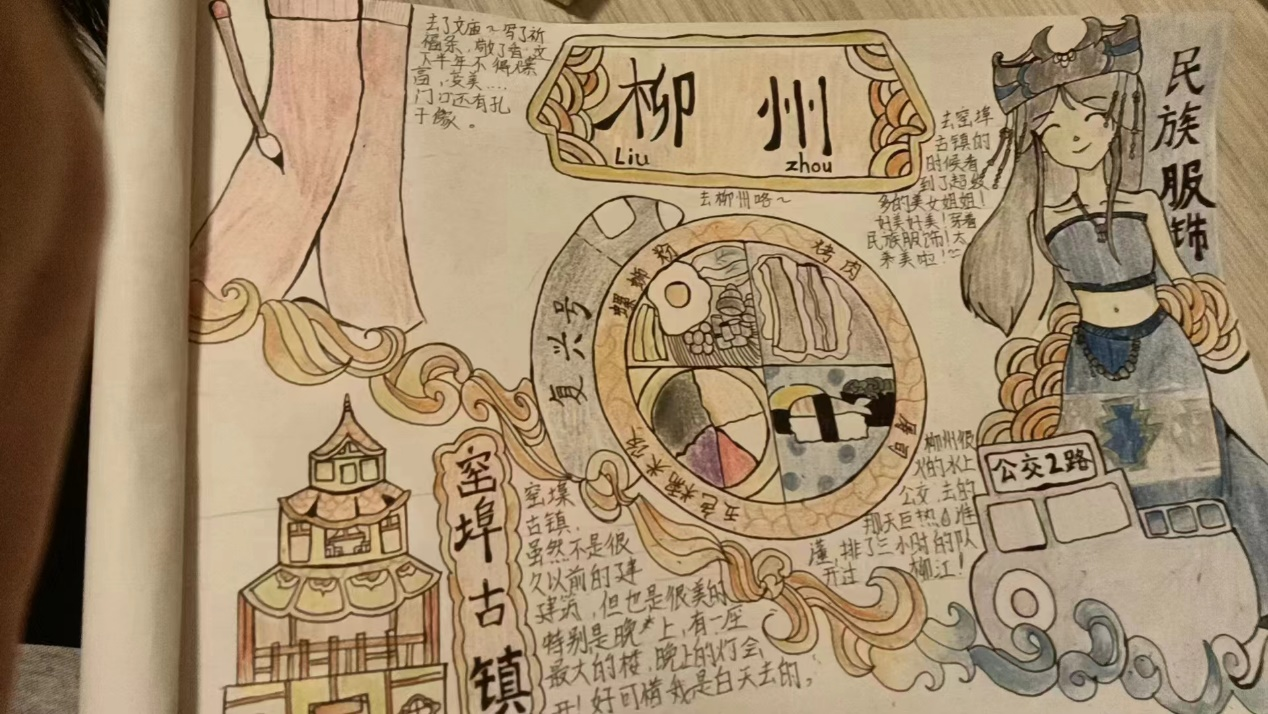 去了文庙~写了祈
福条,敬了香,这
下半年不得大暴
富,变美....
门口还有孔
子像。
柳 州
Liu zhou
去柳州咯~
去窑埠
古镇的
时候看
到了超级
多的美女姐姐!
好美好美!穿着
民族服饰!太
来美啦!
民族服饰
复兴号
螺蛳粉
烤肉
寿司
五色糯米饭
窑埠古镇
窑埠
古镇,
虽然不是很
久以前的建
建筑,但也是很美的
特别是晚上,有一座
最大的楼,晚上的灯会
开!好可惜我是白天去的,
柳州很
火的水上
公交,去的
那天巨热
,排了三小时的队
开过 柳江!
公交2路